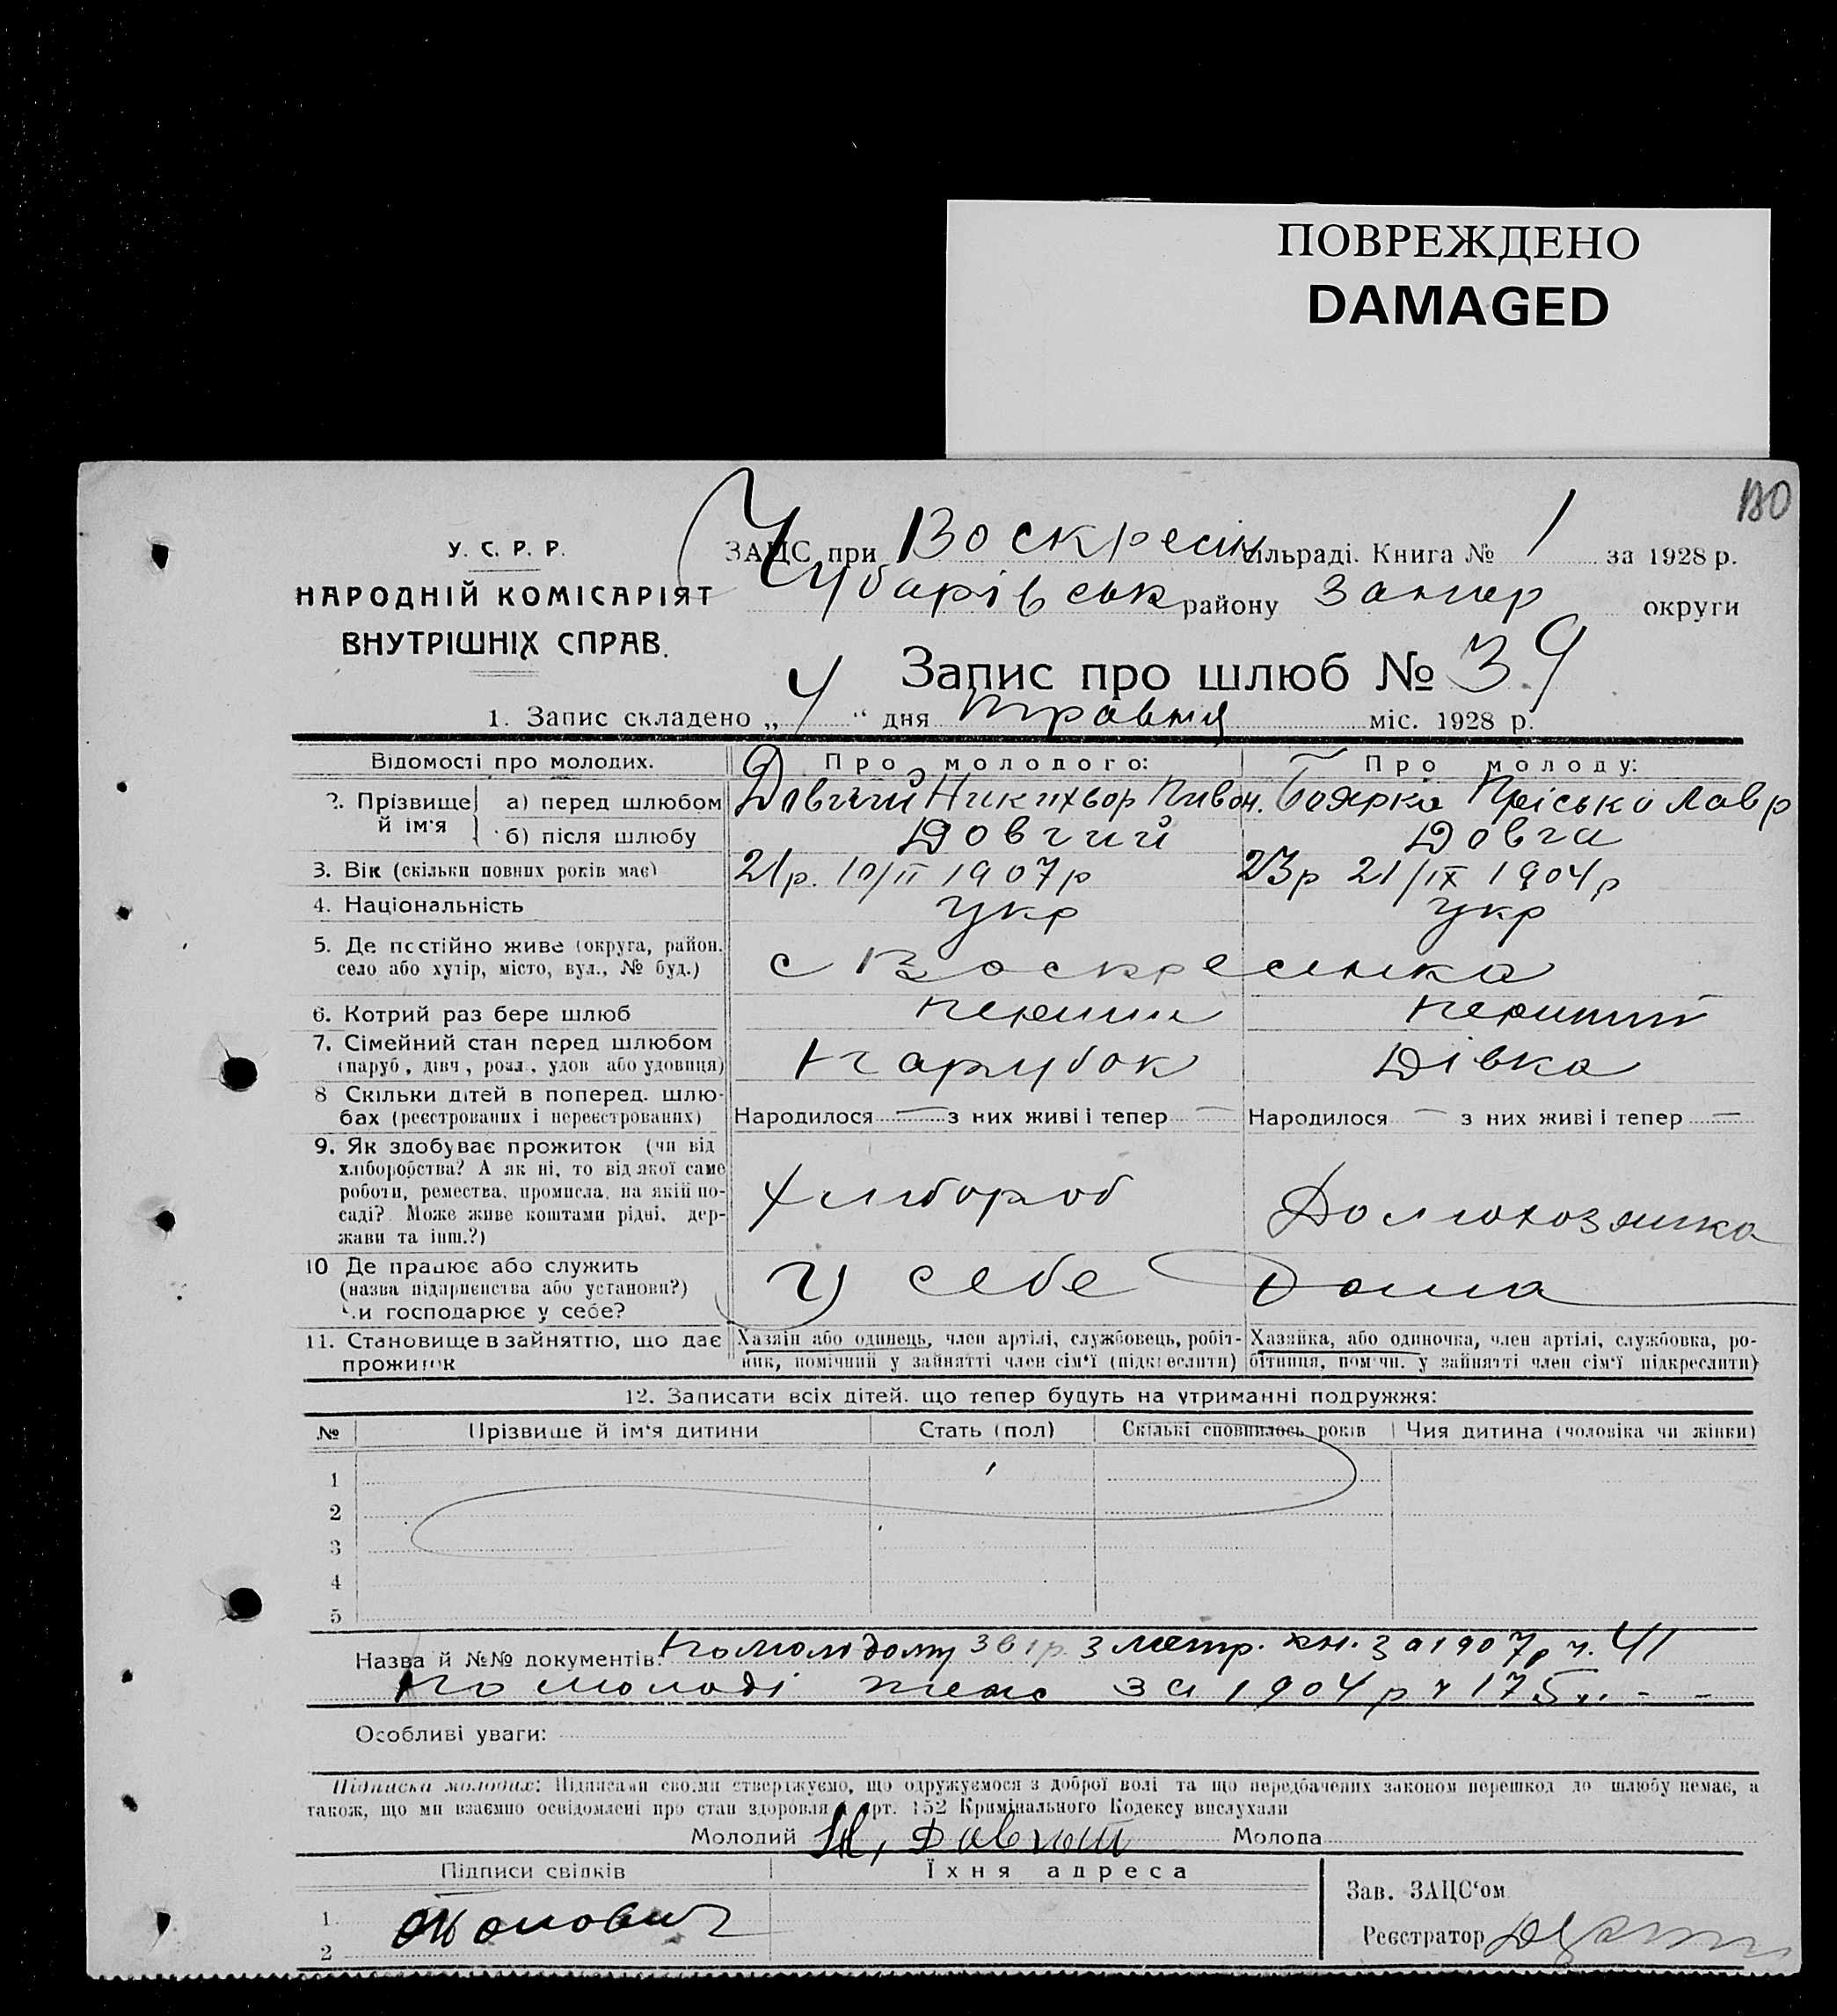 ПОВРЕЖДЕНО
DAMAGED
180
У. С. Р. Р.
НАРОДНІЙ КОМІСАРІЯТ
ВНУТРІШНІХ СПРАВ.
ЗАЦС при Воскресін сільраді. Книга № 1 за 1928 р.
Чубарівськ району Запор округи
Запис про шлюб № 39
1. Запис складено „ 4 “ дня травня міс. 1928 р.
Відомості про молодих. Про молодого: Про молоду:
2. Прізвище й ім'я а) перед шлюбом Довгий Никихвор Пивон. Боярка Пріська Лавр
б) після шлюбу Довгий Довга
3. Вік (скільки повних років має) 21р. 10/II 1907р 23р 21/IX 1904р
4. Національність укр укр
5. Де постійно живе (округа, район.
село або хутір, місто, вул., № буд.) с Воскресенка
6. Котрий раз бере шлюб перший перший
7. Сімейний стан перед шлюбом
(паруб., дівч., розл., удов або удовиця) парубок Дівка
8 Скільки дітей в поперед. шлю-
бах (реєстрованих і нереєстрованих) Народилося — з них живі і тепер — Народилося — з них живі і тепер —
9. Як здобуває прожиток (чи від
хліборобства? А як ні, то від якої саме
роботи, ремества, промисла, на якій по-
саді? Може живе коштами рідні, дер-
жави та інш.?) Хлибороб Домохозяйка
10 Де працює або служить
(назва підприємства або установи?)
Чи господарює у себе? У себе Дома
11. Становище в зайняттю, що дає
прожиток
Хазяїн або одинець, член артілі, службовець, робіт-
ник, помічний у зайнятті член сім'ї (підкреслити)
Хазяйка, або одиночка, член артілі, службовка, ро-
бітниця, помічн. у зайнятті член сім'ї підкреслити)
12. Записати всіх дітей, що тепер будуть на утриманні подружжя:
№ Прізвище й ім'я дитини Стать (пол) Скількі сповнилось років Чия дитина (чоловіка чи жінки)
1
2
3
4
5
Назва й №№ документів: по молодому з метр. кн. за 1907р ч. 41
по молоді за 1904р ч 175
Особливі уваги:
Підписка молодих: Підписами своїми стверджуємо, що одружуємося з доброї волі та що передбачених законом перешкод до шлюбу немає, а
також, що ми взаємно освідомлені про стан здоровля й арт. 152 Кримінального Кодексу вислухали
Молодий Н, Довгий Молода
Підписи свідків Їхня адреса
1.
2
Зав. ЗАЦС'ом
Реєстратор